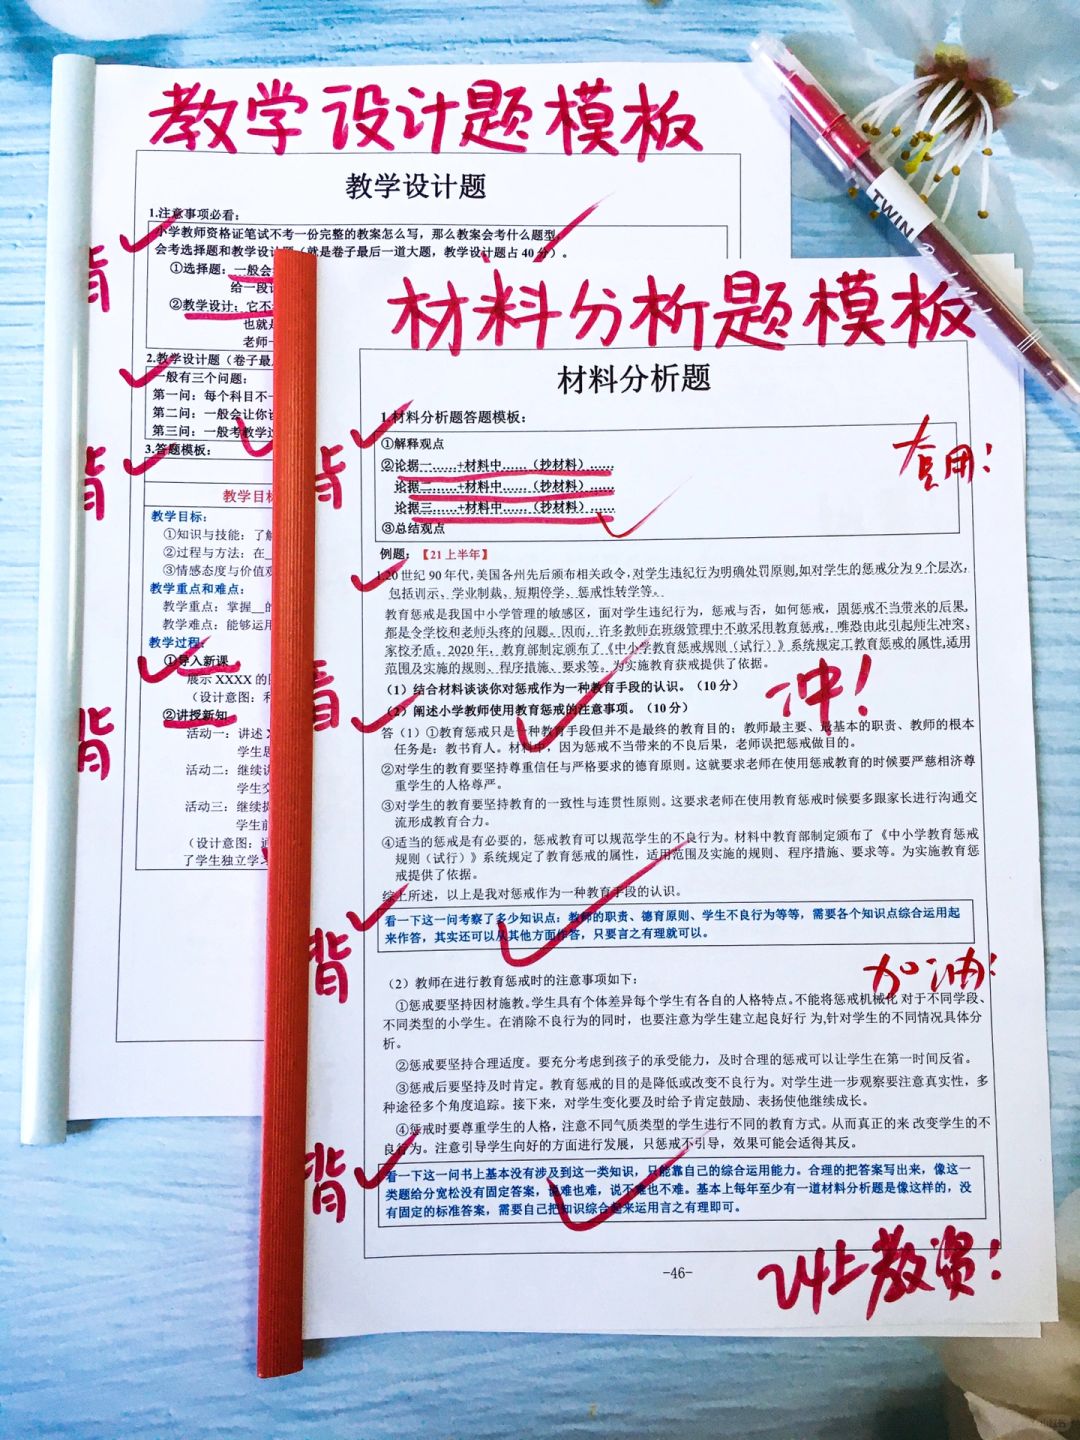 教学设计题模板
教学设计题
1.注意事项必看：
小学教师资格证笔试不考一份完整的教案怎么写，那么教案会考什么题型，
会考选择题和教学设计题（就是卷子最后一道大题，教学设计题占 40 分）。
①选择题：一般会
给一段
②教学设计：它不
也就是
老师一
2.教学设计题（卷子最
一般有三个问题：
第一问：每个科目不一
第二问：一般会让你
第三问：一般考教学
3.答题模板：
教学目标
教学目标：
①知识与技能：了解
②过程与方法：在__
③情感态度与价值观
教学重点和难点：
教学重点：掌握__的
教学难点：能够运用
教学过程：
①导入新课
展示 XXXX 的
（设计意图：
②讲授新知
活动一：讲述
学生
活动二：继续
学生交
活动三：继续
学生前
（设计意图：通
了学生独立学习
背
背
背
TWIN
材料分析题模板
材料分析题
1.材料分析题答题模板：
①解释观点
②论据一……+材料中……（抄材料）……
论据二……+材料中……（抄材料）……
论据三……+材料中……（抄材料）……
③总结观点
套用！
例题：【21 上半年】
1.20 世纪 90 年代，美国各州先后颁布相关政令，对学生违纪行为明确处罚原则，如对学生的惩戒分为 9 个层次，
包括训示、学业制裁、短期停学、惩戒性转学等。
教育惩戒是我国中小学管理的敏感区，面对学生违纪行为，惩戒与否，如何惩戒，因惩戒不当带来的后果，
都是令学校和老师头疼的问题。因而，许多教师在班级管理中不敢采用教育惩戒，唯恐由此引起师生冲突、
家校矛盾。2020 年，教育部制定颁布了《中小学教育惩戒规则（试行）》系统规定工教育惩戒的属性，适用
范围及实施的规则、程序措施、要求等。为实施教育获戒提供了依据。
（1）结合材料谈谈你对惩戒作为一种教育手段的认识。（10 分）
（2）阐述小学教师使用教育惩戒的注意事项。（10 分）
冲！
答（1）①教育惩戒只是一种教育手段但并不是最终的教育目的；教师最主要、最基本的职责、教师的根本
任务是：教书育人。材料中，因为惩戒不当带来的不良后果，老师误把惩戒做目的。
②对学生的教育要坚持尊重信任与严格要求的德育原则。这就要求老师在使用惩戒教育的时候要严慈相济尊
重学生的人格尊严。
③对学生的教育要坚持教育的一致性与连贯性原则。这要求老师在使用教育惩戒时候要多跟家长进行沟通交
流形成教育合力。
④适当的惩戒是有必要的，惩戒教育可以规范学生的不良行为。材料中教育部制定颁布了《中小学教育惩戒
规则（试行）》系统规定了教育惩戒的属性，适用范围及实施的规则、程序措施、要求等。为实施教育惩
戒提供了依据。
综上所述，以上是我对惩戒作为一种教育手段的认识。
看一下这一问考察了多少知识点：教师的职责、德育原则、学生不良行为等等，需要各个知识点综合运用起
来作答，其实还可以从其他方面作答，只要言之有理就可以。
加油！
（2）教师在进行教育惩戒时的注意事项如下：
①惩戒要坚持因材施教。学生具有个体差异每个学生有各自的人格特点。不能将惩戒机械化 对于不同学段、
不同类型的小学生。在消除不良行为的同时，也要注意为学生建立起良好行 为，针对学生的不同情况具体分
析。
②惩戒要坚持合理适度。要充分考虑到孩子的承受能力，及时合理的惩戒可以让学生在第一时间反省。
③惩戒后要坚持及时肯定。教育惩戒的目的是降低或改变不良行为。对学生进一步观察要注意真实性，多
种途径多个角度追踪。接下来，对学生变化要及时给予肯定鼓励、表扬使他继续成长。
④惩戒时要尊重学生的人格，注意不同气质类型的学生进行不同的教育方式。从而真正的来 改变学生的不
良行为。注意引导学生向好的方面进行发展，只惩戒不引导，效果可能会适得其反。
看一下这一问书上基本没有涉及到这一类知识，只能靠自己的综合运用能力。合理的把答案写出来，像这一
类题给分宽松没有固定答案，说难也难，说不难也不难。基本上每年至少有一道材料分析题是像这样的，没
有固定的标准答案，需要自己把知识综合起来运用言之有理即可。
背
背
背
背
-46-
24上教资！
小红书